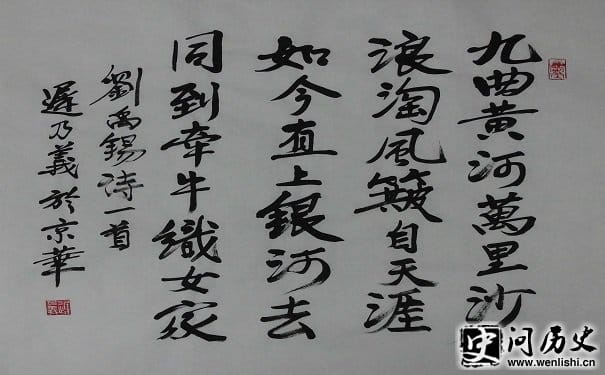 九曲黄河萬里沙
浪淘風簸自天涯
如今直上銀河去
同到牽牛織女家
劉禹錫詩一首
遲乃義於京華
问历史
www.wenlishi.cn